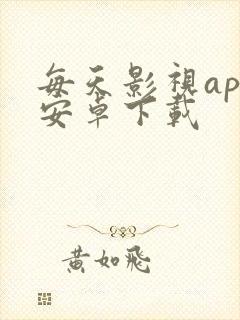 每天影視ap
安卓下載
黃如飛